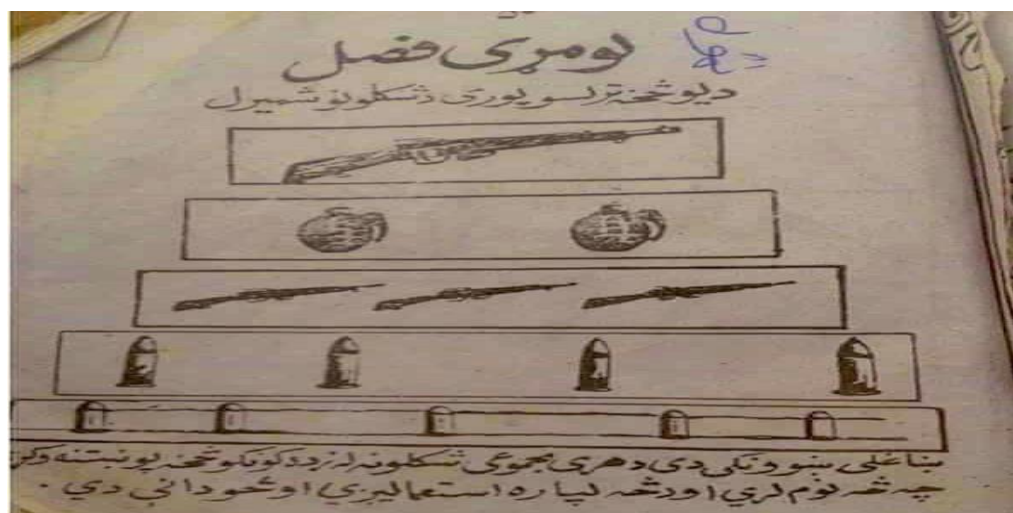 لومړی فصل
د یو څخه تر لسو پوری د شکلونو شمیرل
ښاغلی ښوونکی دی د هری مجموعی شکلونه له زده کونکو څخه پوښتنه وکړ
چه څه نوم لری او د څه لپاره استعمالیږی او څو دانی دی .